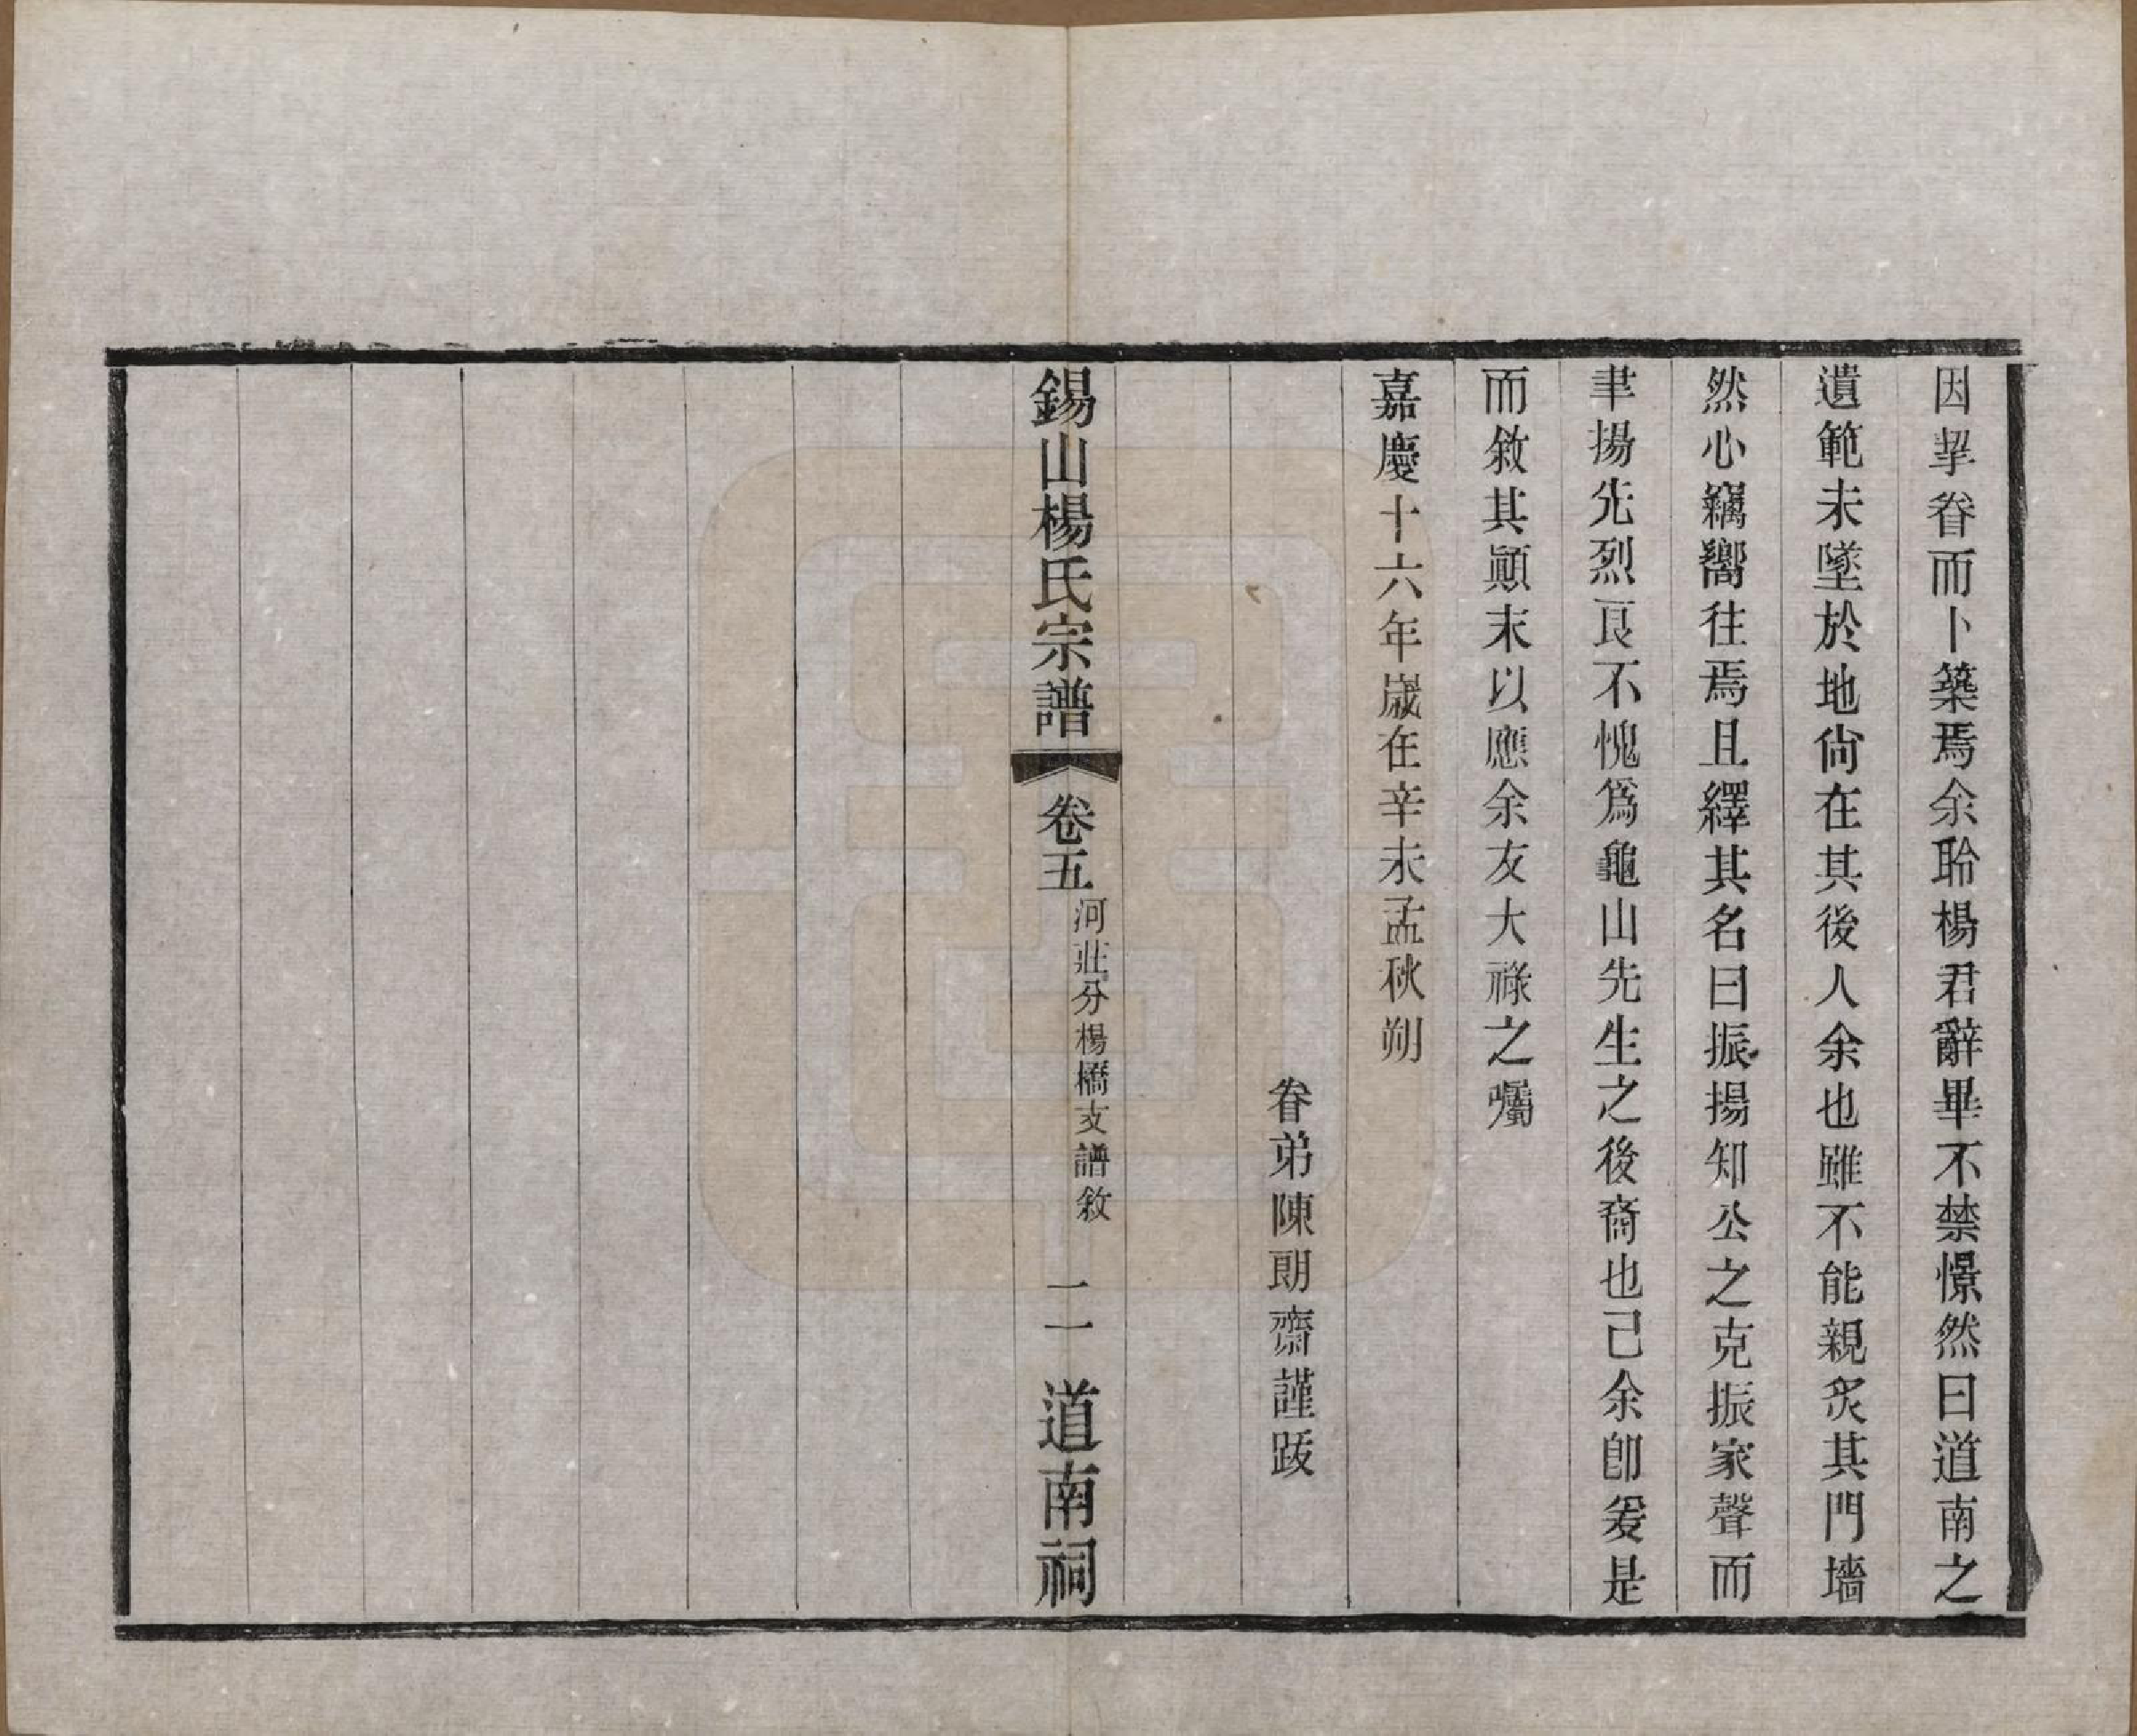 因挈眷而卜築焉余聆楊君辭畢不禁憬然曰道南之
遺範未墜於地尙在其後人余也雖不能親炙其門墻
然心竊嚮往焉且繹其名曰振揚知公之克振家聲而
聿揚先烈良不愧爲龜山先生之後裔也已余卽爰是
而敘其顚末以應余友大祿之囑
嘉慶十六年歲在辛未孟秋朔
眷弟陳朗齋謹跋
錫山楊氏宗譜
卷五
河莊分楊橋支譜敘
二一
道南祠